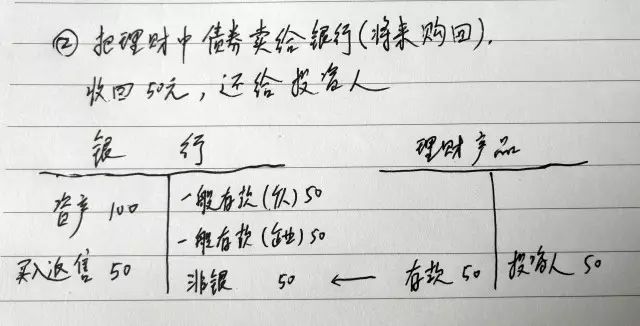 ② 把理财中债券卖给银行(将来购回).
收回50元，还给投资人
银 行 理财产品
资产 100 一般存款(个人) 50
一般存款(企业) 50
买入返售 50 非银 50 ← 存款 50 投资人 50